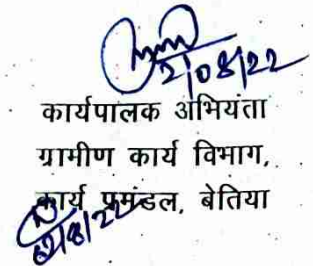 2/08/22
कार्यपालक अभियंता
ग्रामीण कार्य विभाग,
कार्य प्रमंडल, बेतिया
2/8/22